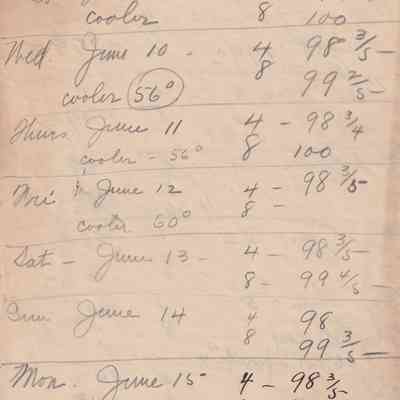 cooler 8 100
Wed June 10 - 4 98 3/5 -
8 99 2/5 -
cooler 56°
Thurs June 11 4 - 98 3/4
cooler - 56° 8 100
Fri June 12 4 - 98 3/5
8 -
cooler 60°
Sat - June 13 - 4 - 98 3/5 -
8 - 99 4/5 -
Sun June 14 4 98
8 99 3/5 -
Mon. June 15 - 4 - 98 3/5